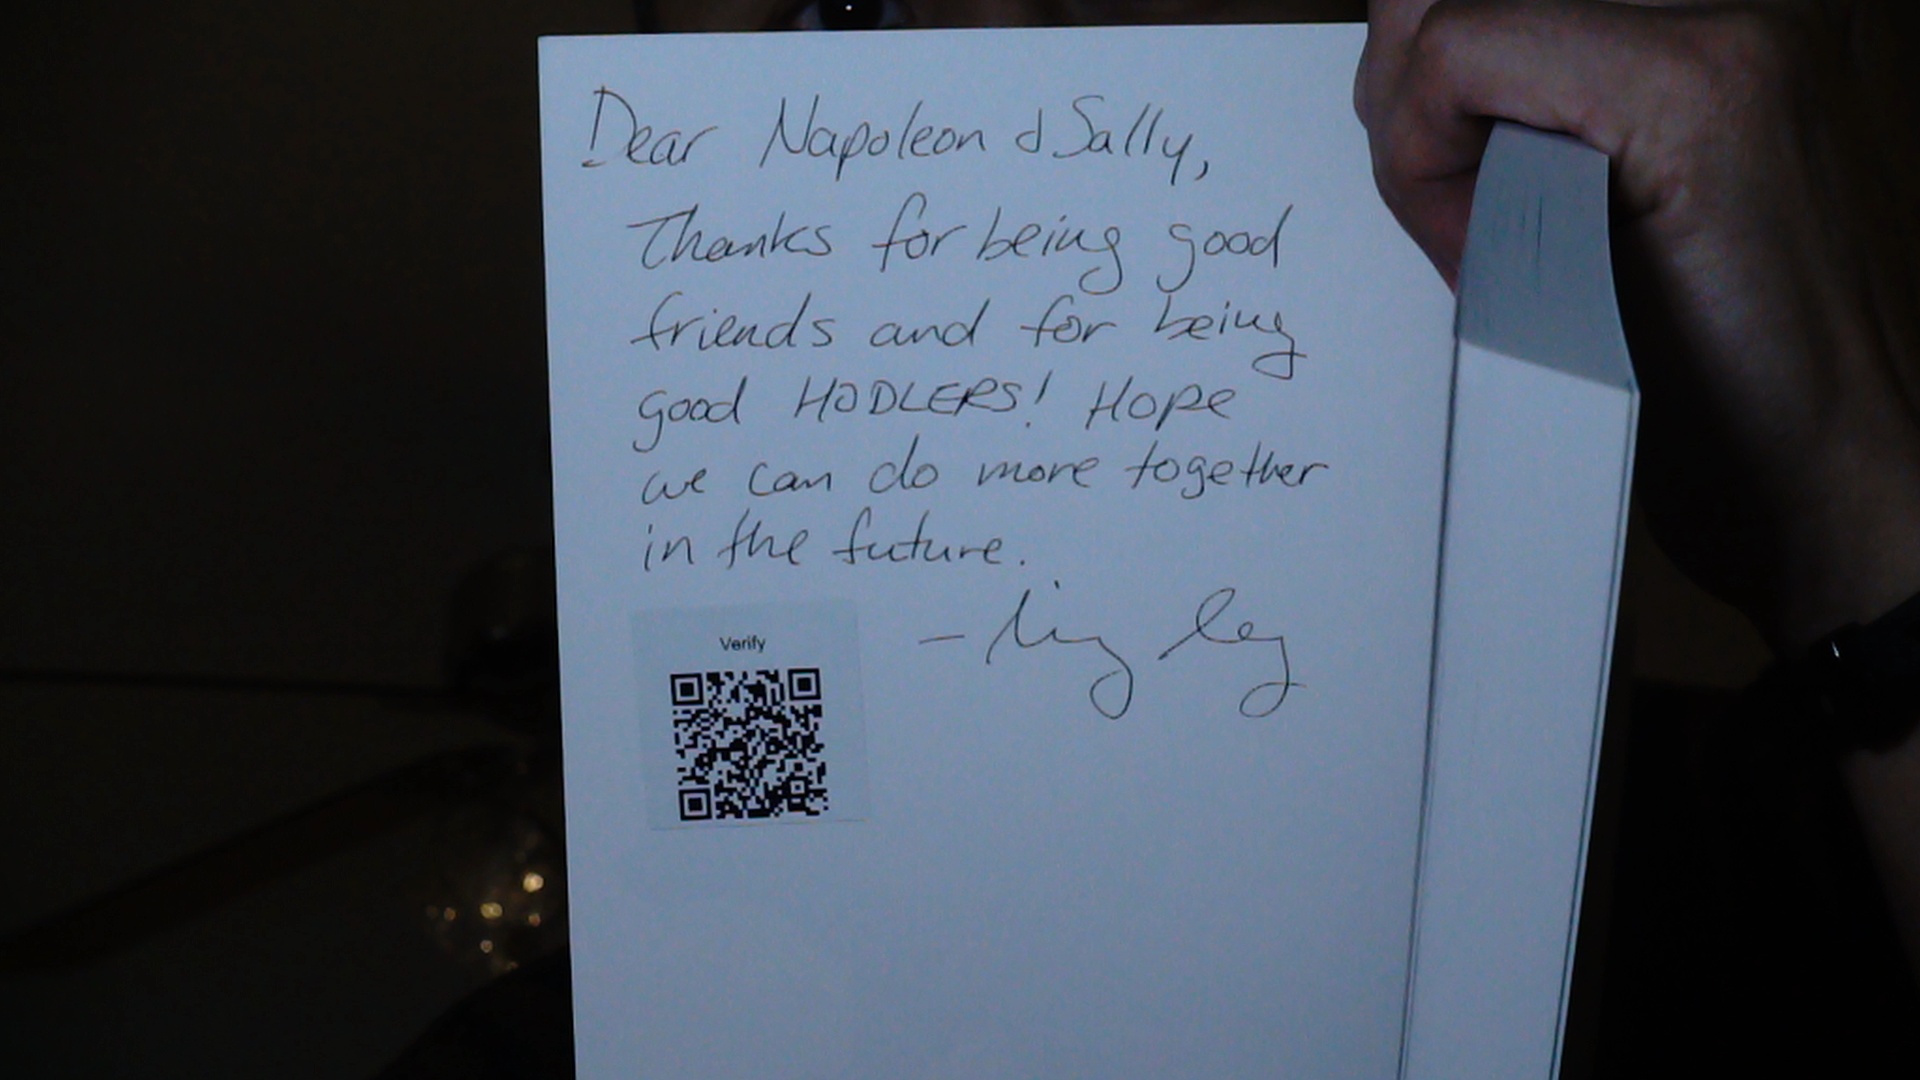 Dear Napoleon & Sally,
Thanks for being good
friends and for being
good HODLERS! Hope
we can do more together
in the future.
Verify